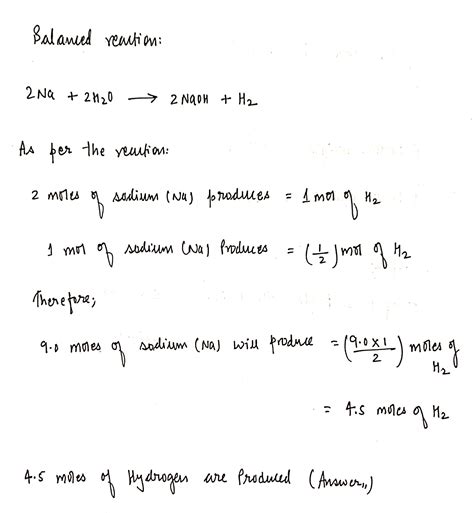 Balanced reaction:
2Na + 2H₂O ⟶ 2NaOH + H₂
As per the reaction:
2 moles of sodium (Na) produces = 1 mol of H₂
1 mol of sodium (Na) Produces = (1/2) mol of H₂
Therefore;
9.0 moles of sodium (Na) will produce = (9.0 × 1 / 2) moles of H₂
= 4.5 moles of H₂
4.5 moles of Hydrogen are Produced (Answer,,)